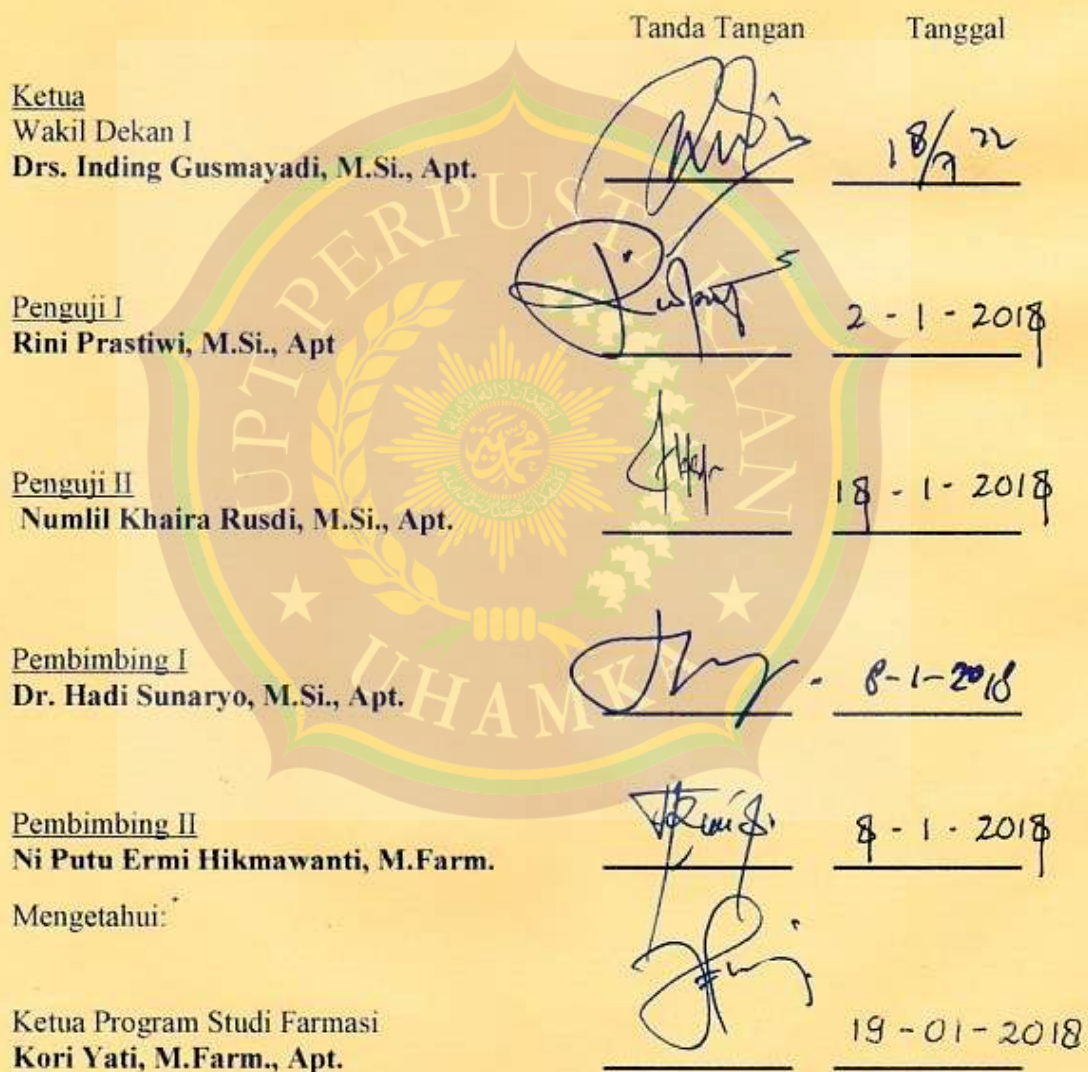 Tanda Tangan Tanggal
Ketua
Wakil Dekan I
Drs. Inding Gusmayadi, M.Si., Apt. 18/7 22
Penguji I
Rini Prastiwi, M.Si., Apt 2 - 1 - 2018
Penguji II
Numlil Khaira Rusdi, M.Si., Apt. 18 - 1 - 2018
Pembimbing I
Dr. Hadi Sunaryo, M.Si., Apt. 8-1-2018
Pembimbing II
Ni Putu Ermi Hikmawanti, M.Farm. 8 - 1 - 2018
Mengetahui:
Ketua Program Studi Farmasi
Kori Yati, M.Farm., Apt. 19 - 01 - 2018
UPT PERPUSTAKAAN
UHAMKA